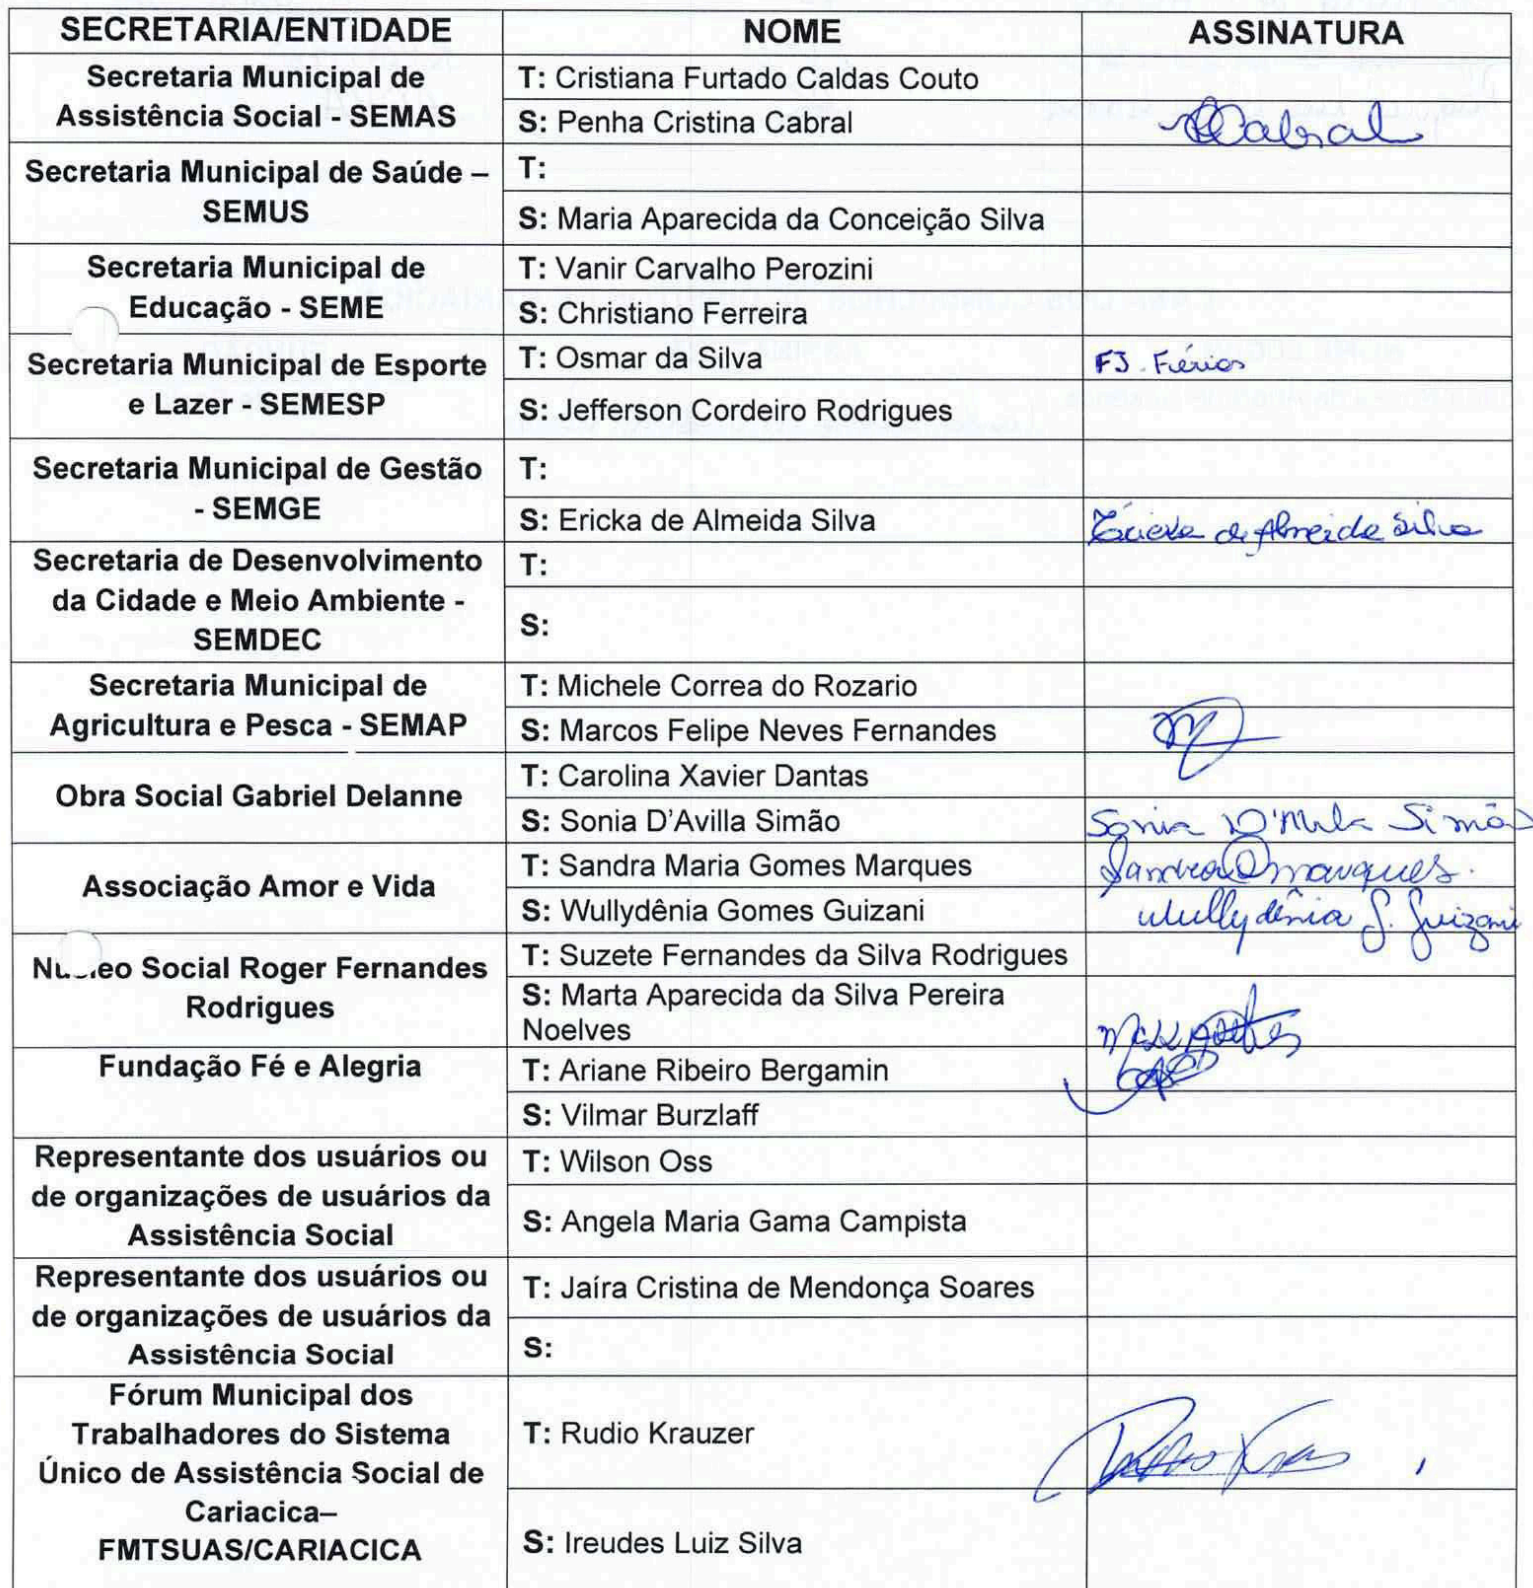 SECRETARIA/ENTIDADE NOME ASSINATURA
Secretaria Municipal de
Assistência Social - SEMAS
T: Cristiana Furtado Caldas Couto
S: Penha Cristina Cabral Cabral
Secretaria Municipal de Saúde –
SEMUS
T:
S: Maria Aparecida da Conceição Silva
Secretaria Municipal de
Educação - SEME
T: Vanir Carvalho Perozini
S: Christiano Ferreira
Secretaria Municipal de Esporte
e Lazer - SEMESP
T: Osmar da Silva FJ. Férias
S: Jefferson Cordeiro Rodrigues
Secretaria Municipal de Gestão
- SEMGE
T:
S: Ericka de Almeida Silva Ericka de Almeida Silva
Secretaria de Desenvolvimento
da Cidade e Meio Ambiente -
SEMDEC
T:
S:
Secretaria Municipal de
Agricultura e Pesca - SEMAP
T: Michele Correa do Rozario
S: Marcos Felipe Neves Fernandes
Obra Social Gabriel Delanne
T: Carolina Xavier Dantas
S: Sonia D'Avilla Simão Sonia D'Avila Simão
Associação Amor e Vida
T: Sandra Maria Gomes Marques Sandra Marques.
S: Wullydênia Gomes Guizani Wullydênia G. Guizani
Núcleo Social Roger Fernandes
Rodrigues
T: Suzete Fernandes da Silva Rodrigues
S: Marta Aparecida da Silva Pereira
Noelves
Fundação Fé e Alegria
T: Ariane Ribeiro Bergamin
S: Vilmar Burzlaff
Representante dos usuários ou
de organizações de usuários da
Assistência Social
T: Wilson Oss
S: Angela Maria Gama Campista
Representante dos usuários ou
de organizações de usuários da
Assistência Social
T: Jaíra Cristina de Mendonça Soares
S:
Fórum Municipal dos
Trabalhadores do Sistema
Único de Assistência Social de
Cariacica–
FMTSUAS/CARIACICA
T: Rudio Krauzer
S: Ireudes Luiz Silva